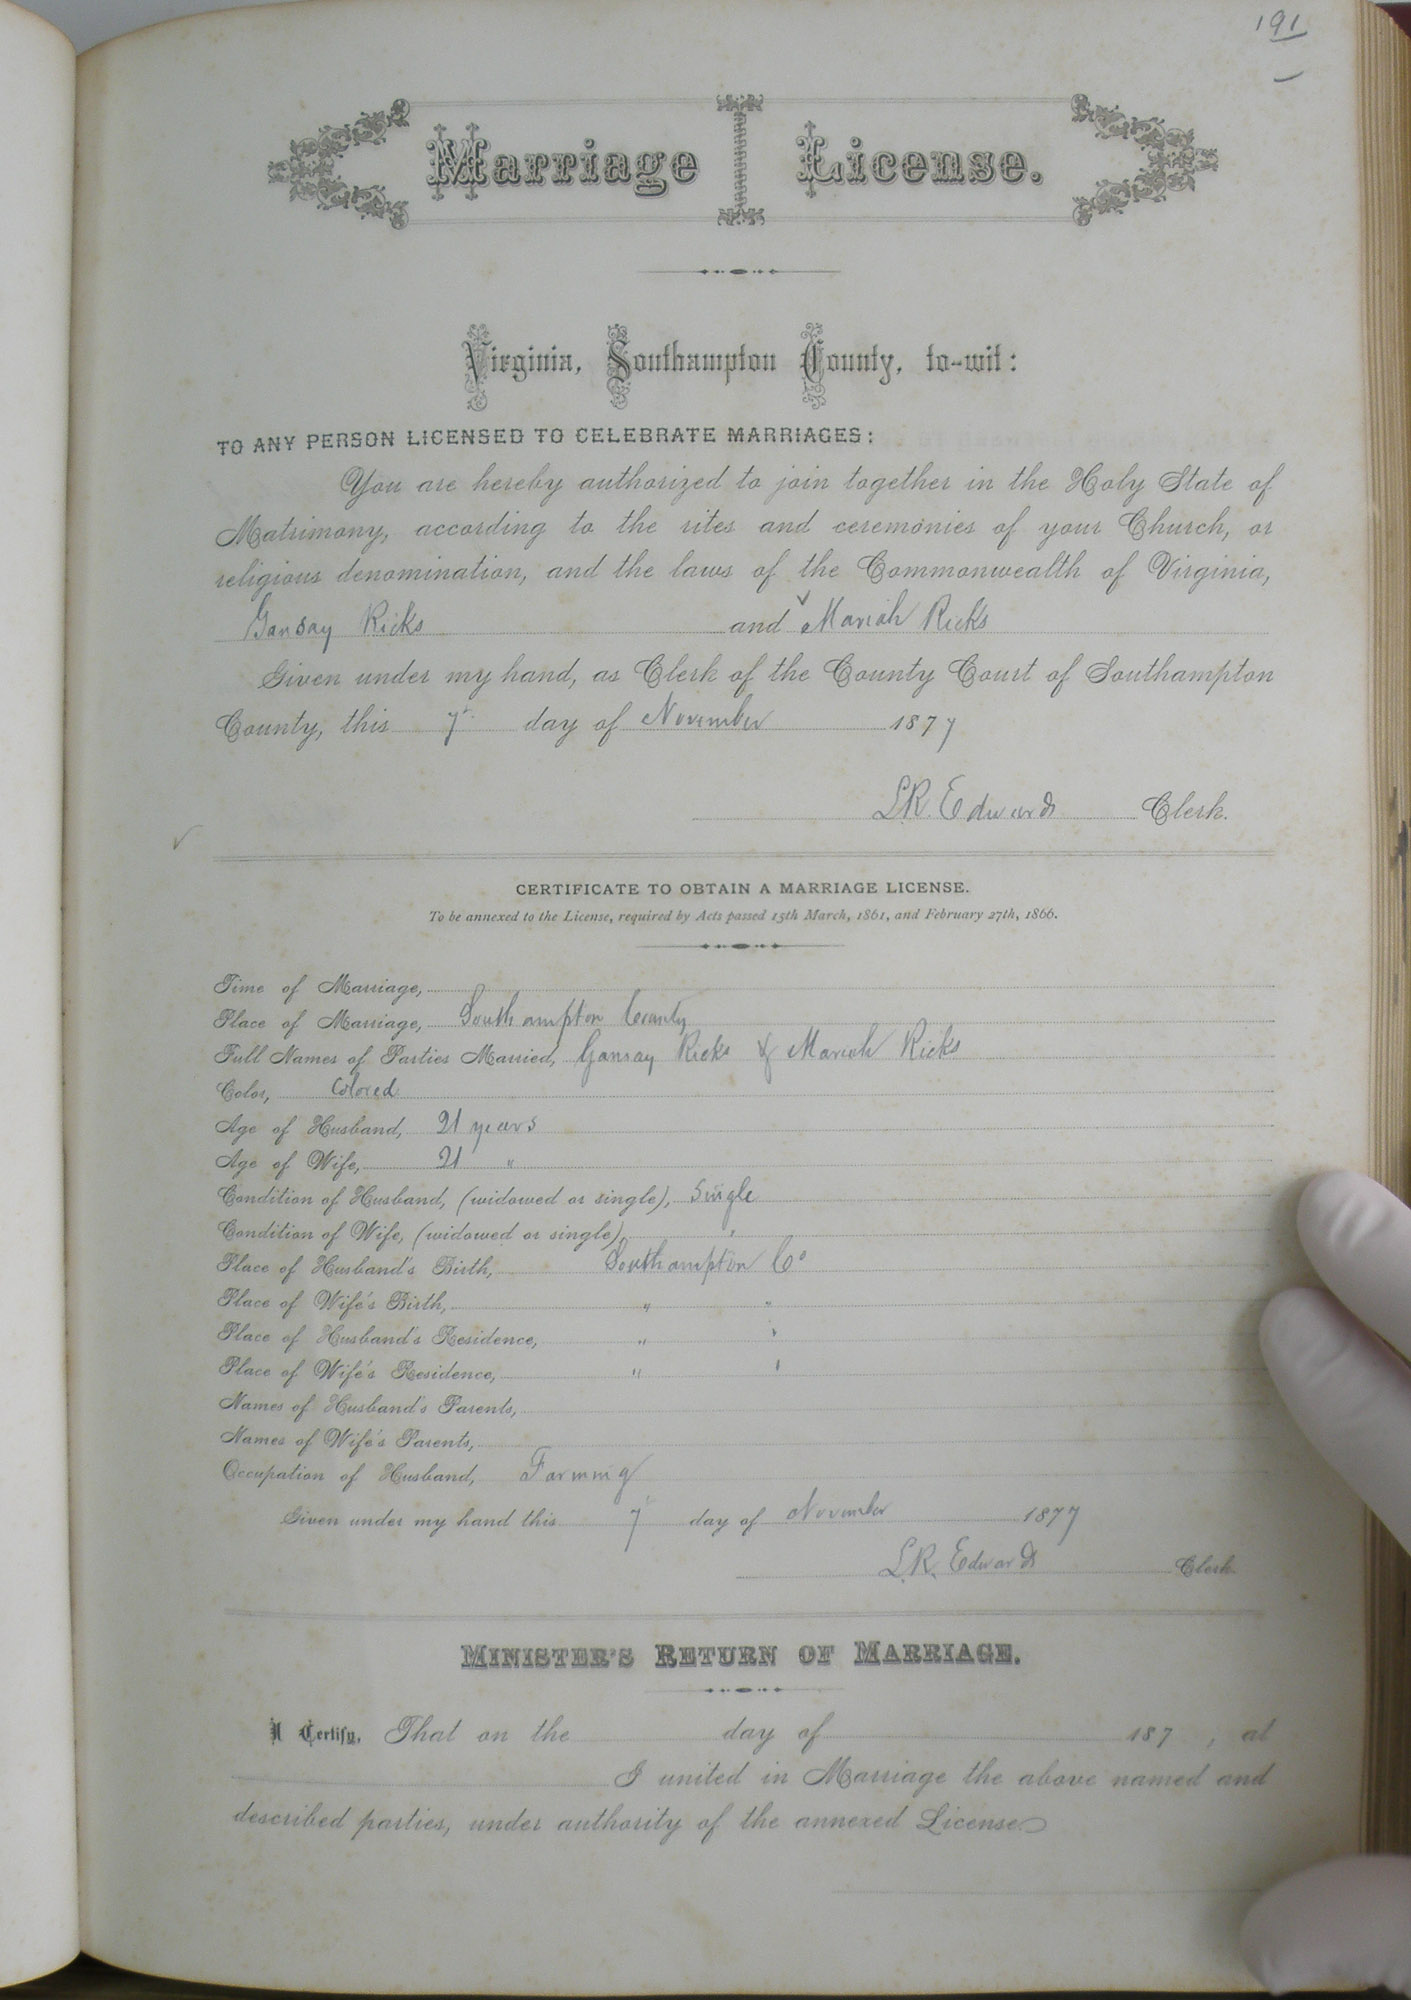 191
Marriage License.
Virginia, Southampton County, to-wit:
TO ANY PERSON LICENSED TO CELEBRATE MARRIAGES:
You are hereby authorized to join together in the Holy State of
Matrimony, according to the rites and ceremonies of your Church, or
religious denomination, and the laws of the Commonwealth of Virginia,
Gansay Ricks and Mariah Ricks
Given under my hand, as Clerk of the County Court of Southampton
County, this 7th day of November 1877
L.R. Edwards Clerk.
CERTIFICATE TO OBTAIN A MARRIAGE LICENSE.
To be annexed to the License, required by Acts passed 15th March, 1861, and February 27th, 1866.
Time of Marriage,
Place of Marriage, Southampton County
Full Names of Parties Married, Gansay Ricks & Mariah Ricks
Color, Colored
Age of Husband, 21 years
Age of Wife, 21 "
Condition of Husband, (widowed or single), Single
Condition of Wife, (widowed or single), "
Place of Husband's Birth, Southampton Co
Place of Wife's Birth, " "
Place of Husband's Residence, " "
Place of Wife's Residence, " "
Names of Husband's Parents,
Names of Wife's Parents,
Occupation of Husband, Farming
Given under my hand this 7 day of November 1877
L.R. Edwards Clerk.
MINISTER'S RETURN OF MARRIAGE.
I Certify, That on the day of 187 , at
I united in Marriage the above named and
described parties, under authority of the annexed License.